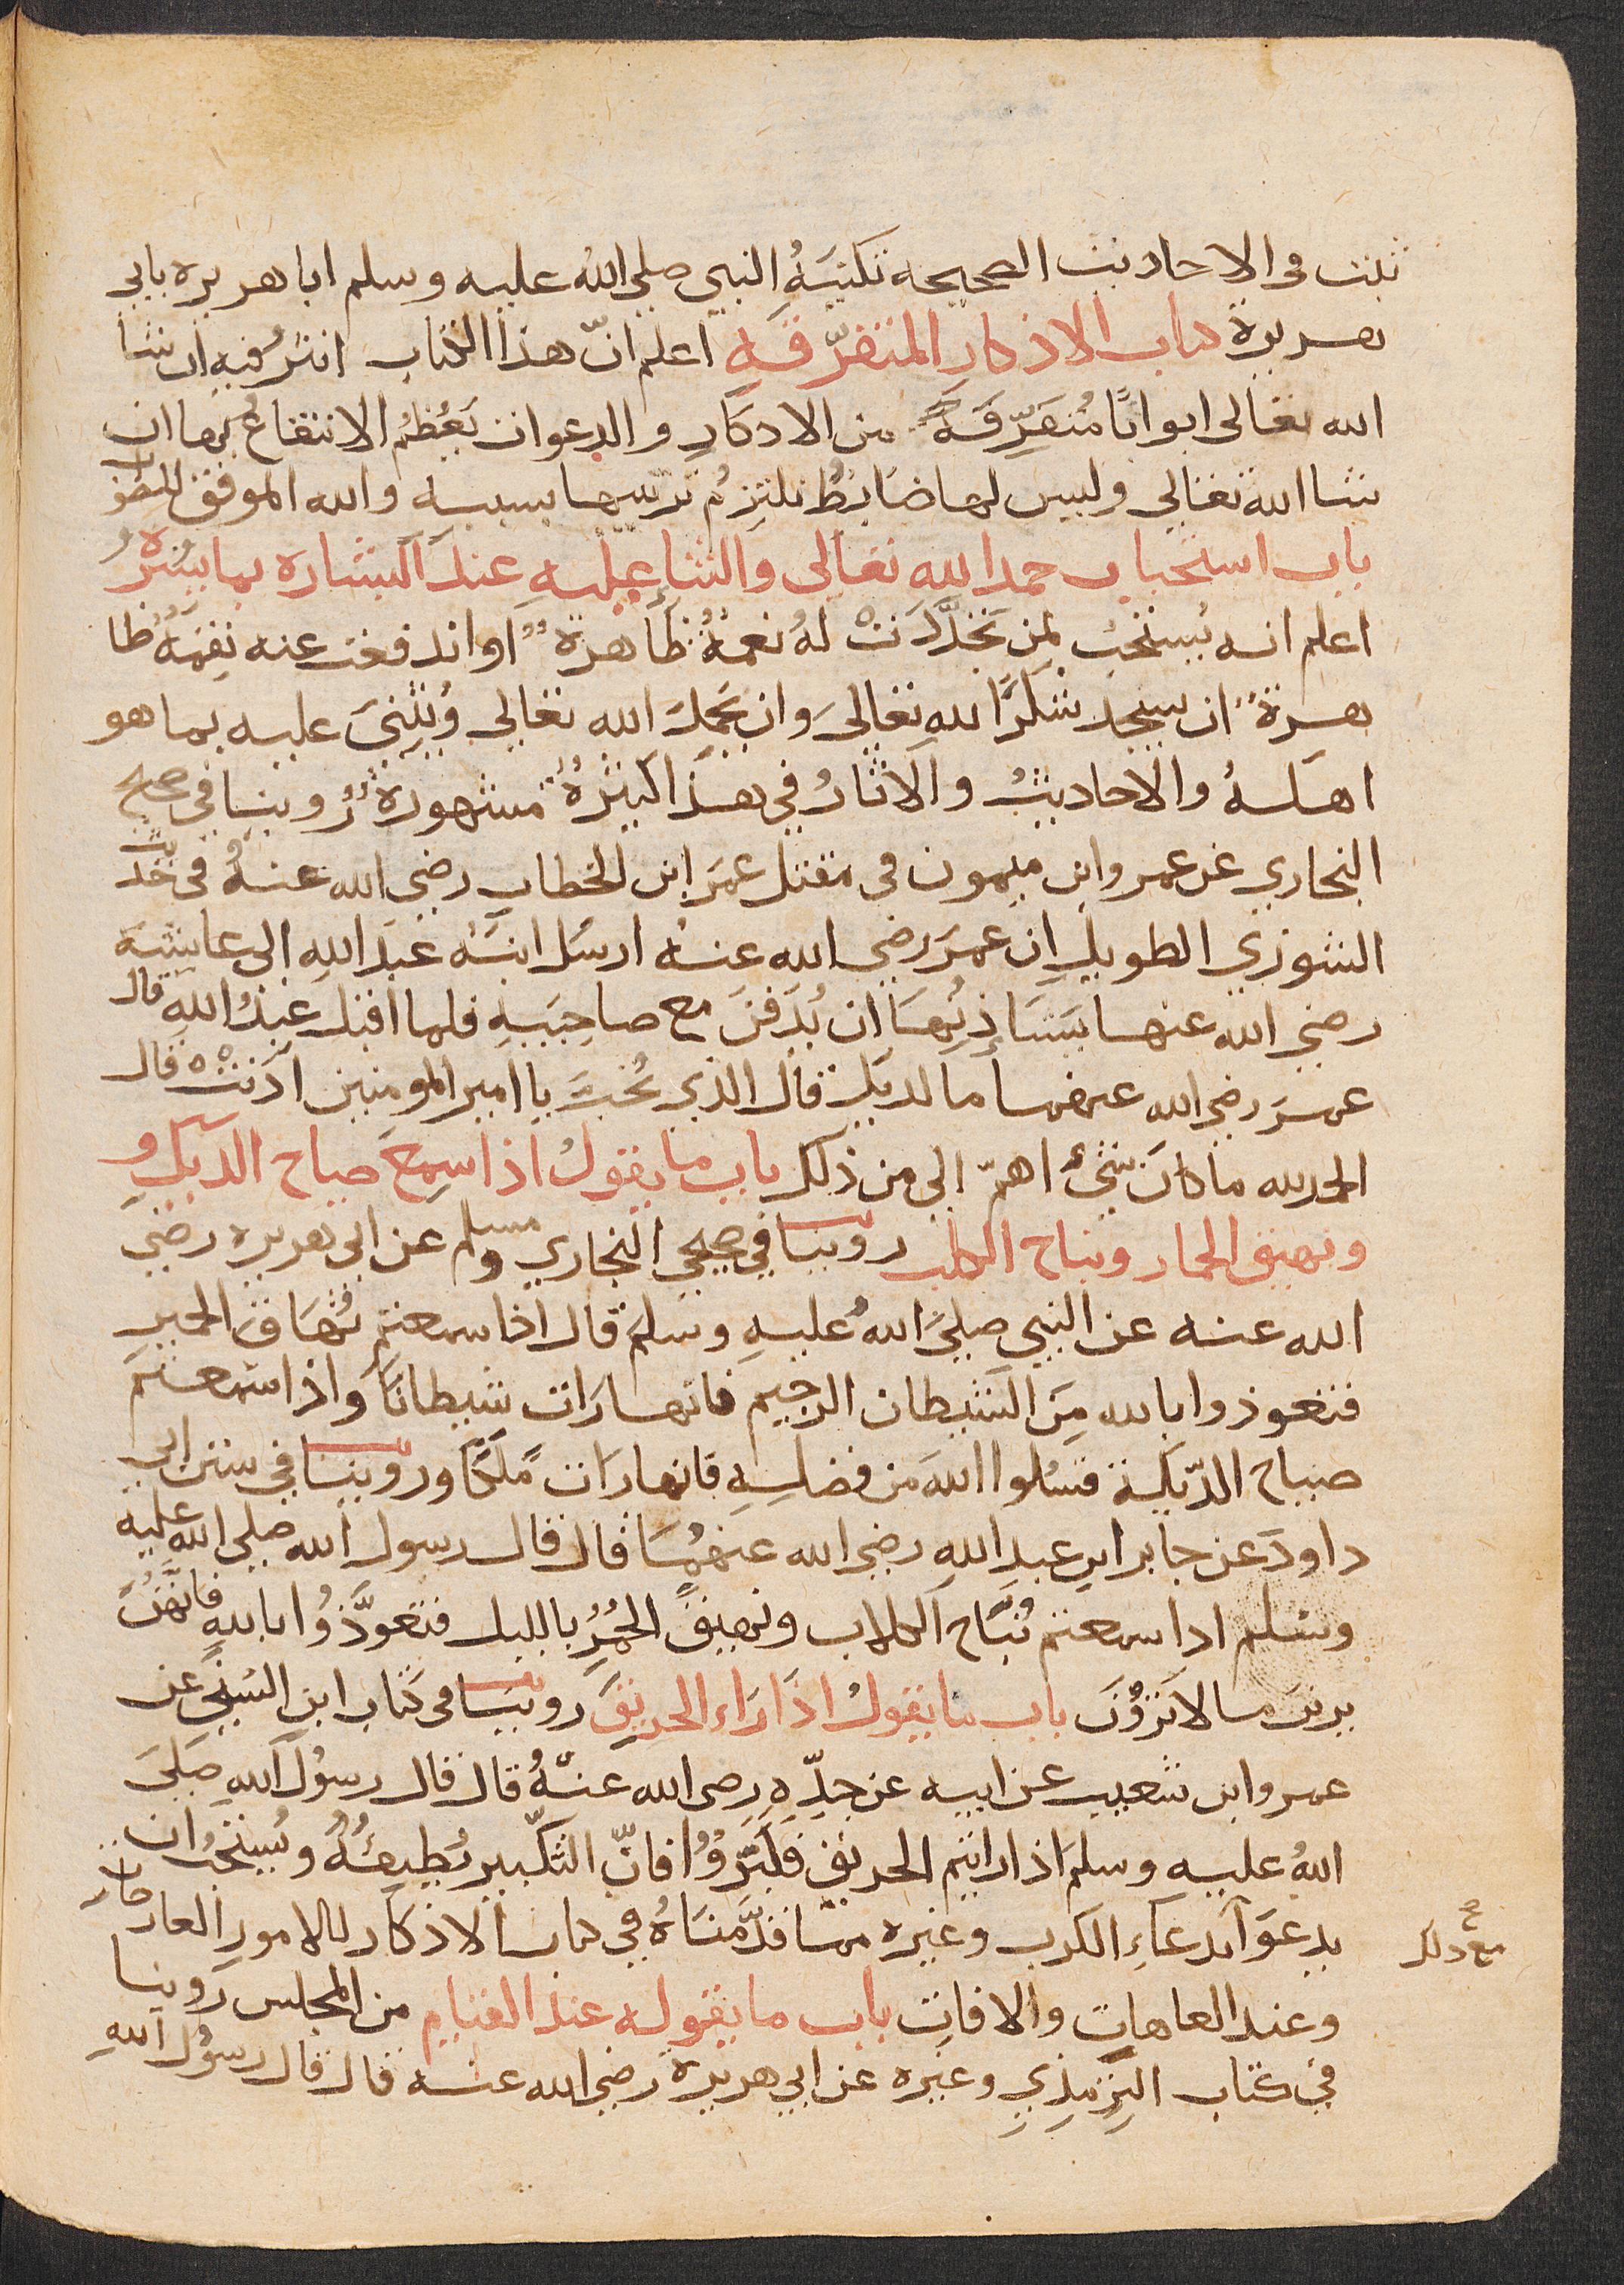 ثبت في الاحاديث الصحيحه تكنيَهُ النبي صلى الله عليه وسلم ابا هريره بابي
هريرة كتاب الاذكار المتفرّقه اعلم انّ هذا الكتاب انثرُ فيه ان شا
الله تعالى ابوابًا مُتفرِّقَة من الاذكارِ والدعوات يَعُظمُ الانتفاعُ بها ان
شا الله تعالى وليس لها ضابِطٌ نلتزِمُ ترتيبها بسببه والله الموفق للصواب
باب استحباب حمد الله تعالى والثنا عليه عند البشاره بما يَسُرُّهُ
اعلم انه يُستحبُ لمن تجدَّدَتْ لهُ نعمةٌ ظاهرةٌ او اندفعت عنه نِقمَةٌ ظا
هرةٌ ان يسجد شكرًا لله تعالى وان يَحمِدَ الله تعالى ويُثنيَ عليه بما هو
اهلهُ والاحاديثُ والاثارُ في هذا كثيرةٌ مشهورةٌ رُوينا في صحيح
البخاري عن عمرو ابن ميمون في مقتل عمَر ابن الخطاب رضي الله عنهُ في حديث
الشوري الطويلِ ان عمرَ رضي الله عنهُ ارسَل ابنَهُ عبدَ اللهِ الى عايشة
رضي الله عنها يَستَاذِنُهَا ان يُدفَنَ مع صاحِبَيهِ فلما اقبل عبدُ اللهِ قال
عمرَ رضي الله عنهما ما لديك قال الذي تُحبُّ يا امير المومنين اذِنَتْ قال
الحمد لله ما كان شيٌ اهمّ الي من ذلك باب ما يقولُ اذا سمِعَ صياح الديكِ و
ونهيق الحمار ونباح الكلب روينا في صحيحي البخاري ومسلم عن ابي هريره رضي
الله عنه عن النبي صلىَ اللهُ عليهِ وسلم قال اذا سمعتم نُهَاقَ الحمير
فتعوذوا بالله مِنَ الشيطان الرجيم فانها رَات شيطانًا واذا سمعتم
صياح الدّيكة فسَلوا اللهَ من فضلِهِ فانها رَات مَلَكًا وروينا في سنن ابي
داودَ عن جابر ابنِ عبدِ اللهِ رضي الله عنهُمَا قال قال رسول الله صلى الله عليه
وسلم اذا سمعتم نُبَاح الكلاب ونهيقَ الحُمُرِ بالليل فتعوَّذُوا باللهِ فانهُنَّ
يرين ما لا تَروْنَ باب ما يقولُ اذَا رَاء الحريقَ روينا في كتاب ابن السّنيّ عن
عمرو ابن شعيب عن ابيه عن جدِّهِ رضي الله عنهُ قال قال رسولُ اللهِ صلى
اللهُ عليه وسلم اذا رايتم الحريق فكَبّروُا فانّ التكبير يُطفِئُهُ ويُستحبُ ان
يدعوَا بدعاءِ الكرب وغيره مما قدَّمنَاهُ في كتاب الاذكار للامور العارضات
مع ذلك
صح
وعند العاهات والافات باب ما يقوله عند القيام من المجلس روينا
في كتاب التِرمِذيِ وغيره عن ابي هريرة رضي الله عنه قال قال رسوُل اللهِ